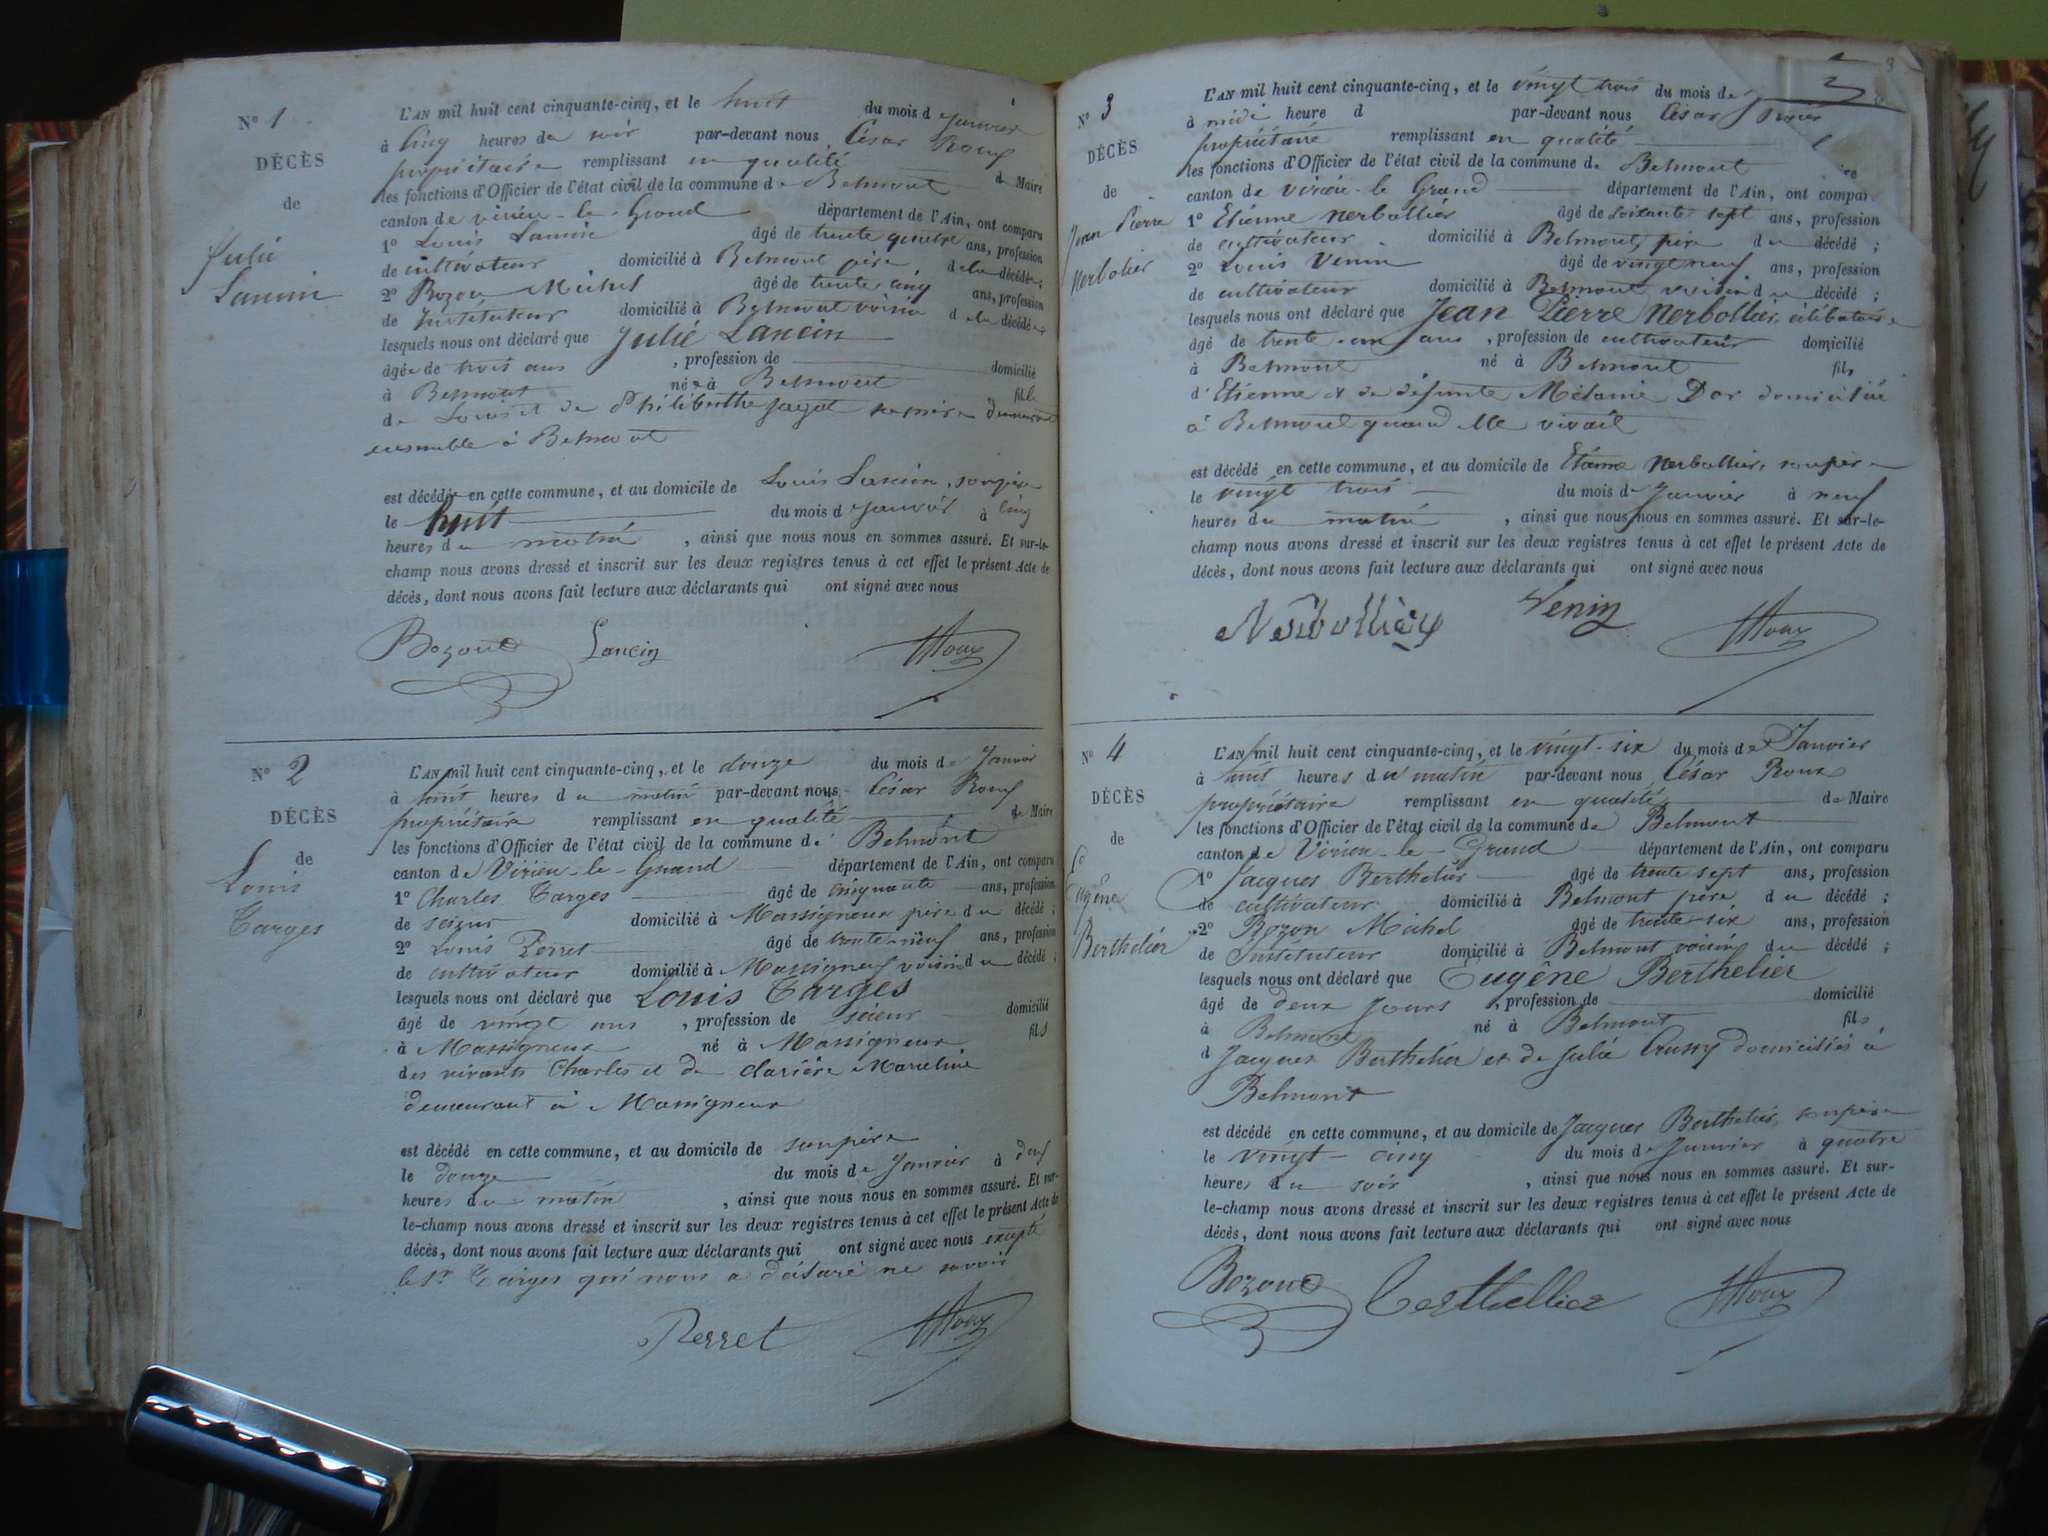 N° 1
DÉCÈS
de
Julie
Lancin
L'AN mil huit cent cinquante-cinq, et le huit du mois de Janvier
à cinq heures du soir par-devant nous César Roux
propriétaire remplissant en qualité de Maire
les fonctions d'Officier de l'état civil de la commune de Belmont
canton de virieu-le-Grand département de l'Ain, ont comparu
1° Louis Lancin âgé de trente quatre ans, profession
de cultivateur domicilié à Belmont père de la décédée;
2° Bozon Michel âgé de trente cinq ans, profession
de Instituteur domicilié à Belmont voisin de la décédée
lesquels nous ont déclaré que Julie Lancin
âgée de trois ans , profession de domicilié
à Belmont née à Belmont fille
de Louis et de Philiberthe Jagot demeurant
ensemble à Belmont
est décédée en cette commune, et au domicile de Louis Lancin, son père
le huit du mois de Janvier à cinq
heures du matin , ainsi que nous nous en sommes assuré. Et sur-le-
champ nous avons dressé et inscrit sur les deux registres tenus à cet effet le présent Acte de
décès, dont nous avons fait lecture aux déclarants qui ont signé avec nous
Bozon Lancin Roux
N° 2
DÉCÈS
de
Louis
Targes
L'AN mil huit cent cinquante-cinq, et le douze du mois de Janvier
à huit heures du matin par-devant nous César Roux
propriétaire remplissant en qualité de Maire
les fonctions d'Officier de l'état civil de la commune de Belmont
canton de Virieu-le-Grand département de l'Ain, ont comparu
1° Charles Targes âgé de cinquante ans, profession
de scieur domicilié à Massigneux père du décédé;
2° Louis Perret âgé de trente-neuf ans, profession
de cultivateur domicilié à Massigneux voisin du décédé;
lesquels nous ont déclaré que Louis Targes
âgé de vingt ans , profession de scieur domicilié
à Massigneux né à Massigneux fils
des vivants Charles et de Marceline
demeurant à Massigneux
est décédé en cette commune, et au domicile de son père
le douze du mois de Janvier à deux
heures du matin , ainsi que nous nous en sommes assuré. Et sur-
le-champ nous avons dressé et inscrit sur les deux registres tenus à cet effet le présent Acte de
décès, dont nous avons fait lecture aux déclarants qui ont signé avec nous excepté
le Sr Targes qui nous a déclaré ne savoir
Perret Roux
N° 3
DÉCÈS
de
Jean Pierre
Nerbolier
L'AN mil huit cent cinquante-cinq, et le vingt trois du mois de
à midi heure d par-devant nous César
propriétaire remplissant en qualité
les fonctions d'Officier de l'état civil de la commune de Belmont
canton de virieu-le Grand département de l'Ain, ont compar
1° Etienne Nerbollier âgé de soixante sept ans, profession
de cultivateur domicilié à Belmont, père du décédé;
2° Louis Venin âgé de vingt neuf ans, profession
de cultivateur domicilié à Belmont voisin du décédé;
lesquels nous ont déclaré que Jean Pierre Nerbollier, célibataire
âgé de trente-un ans , profession de cultivateur domicilié
à Belmont né à Belmont fils
d'Etienne et de défunte Mélanie Dor domiciliée
à Belmont quand elle vivait
est décédé en cette commune, et au domicile de Etienne Nerbollier, son père
le vingt trois du mois de Janvier à neuf
heures du matin , ainsi que nous nous en sommes assuré. Et sur-le-
champ nous avons dressé et inscrit sur les deux registres tenus à cet effet le présent Acte de
décès, dont nous avons fait lecture aux déclarants qui ont signé avec nous
Nerbollier Venin Roux
N° 4
DÉCÈS
de
Eugène
Berthelier
L'AN mil huit cent cinquante-cinq, et le vingt-six du mois de Janvier
à huit heures du matin par-devant nous César Roux
propriétaire remplissant en qualité de Maire
les fonctions d'Officier de l'état civil de la commune de Belmont
canton de Virieu-le-Grand département de l'Ain, ont comparu
1° Jacques Berthelier âgé de trente sept ans, profession
de cultivateur domicilié à Belmont père du décédé;
2° Bozon Michel âgé de trente-six ans, profession
de Instituteur domicilié à Belmont voisin du décédé;
lesquels nous ont déclaré que Eugène Berthelier
âgé de deux jours , profession de domicilié
à Belmont né à Belmont fils
d Jacques Berthelier et de Julie domiciliés à
Belmont
est décédé en cette commune, et au domicile de Jacques Berthelier, son père
le vingt-cinq du mois de Janvier à quatre
heures du soir , ainsi que nous nous en sommes assuré. Et sur-
le-champ nous avons dressé et inscrit sur les deux registres tenus à cet effet le présent Acte de
décès, dont nous avons fait lecture aux déclarants qui ont signé avec nous
Bozon Berthellier Roux